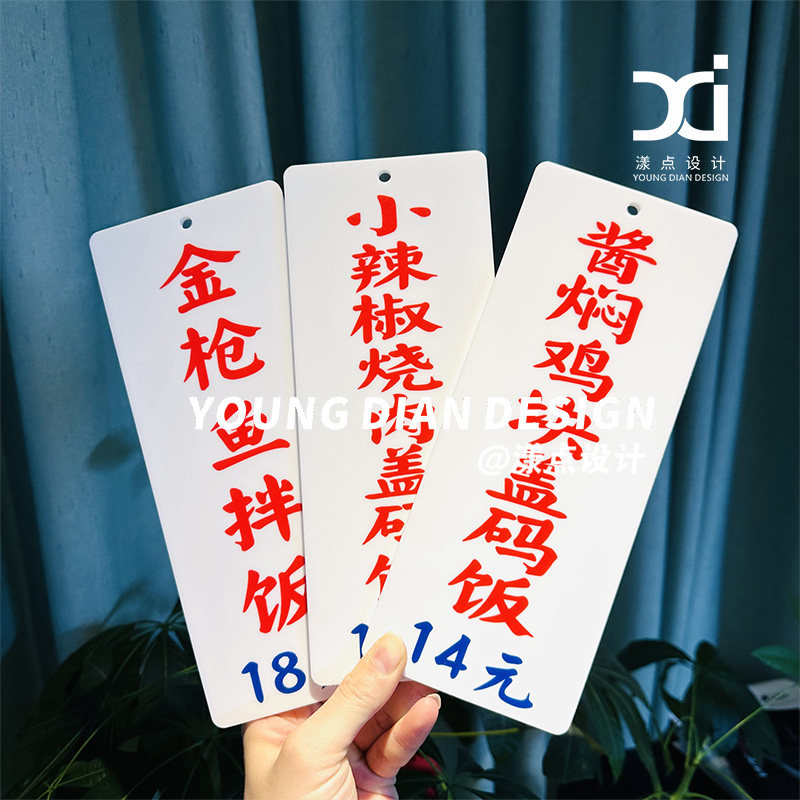 漾点设计
YOUNG DIAN DESIGN
金枪鱼拌饭
18
小辣椒烧肉盖码饭
1
酱焖鸡块盖码饭
14元
YOUNG DIAN DESIGN
@漾点设计